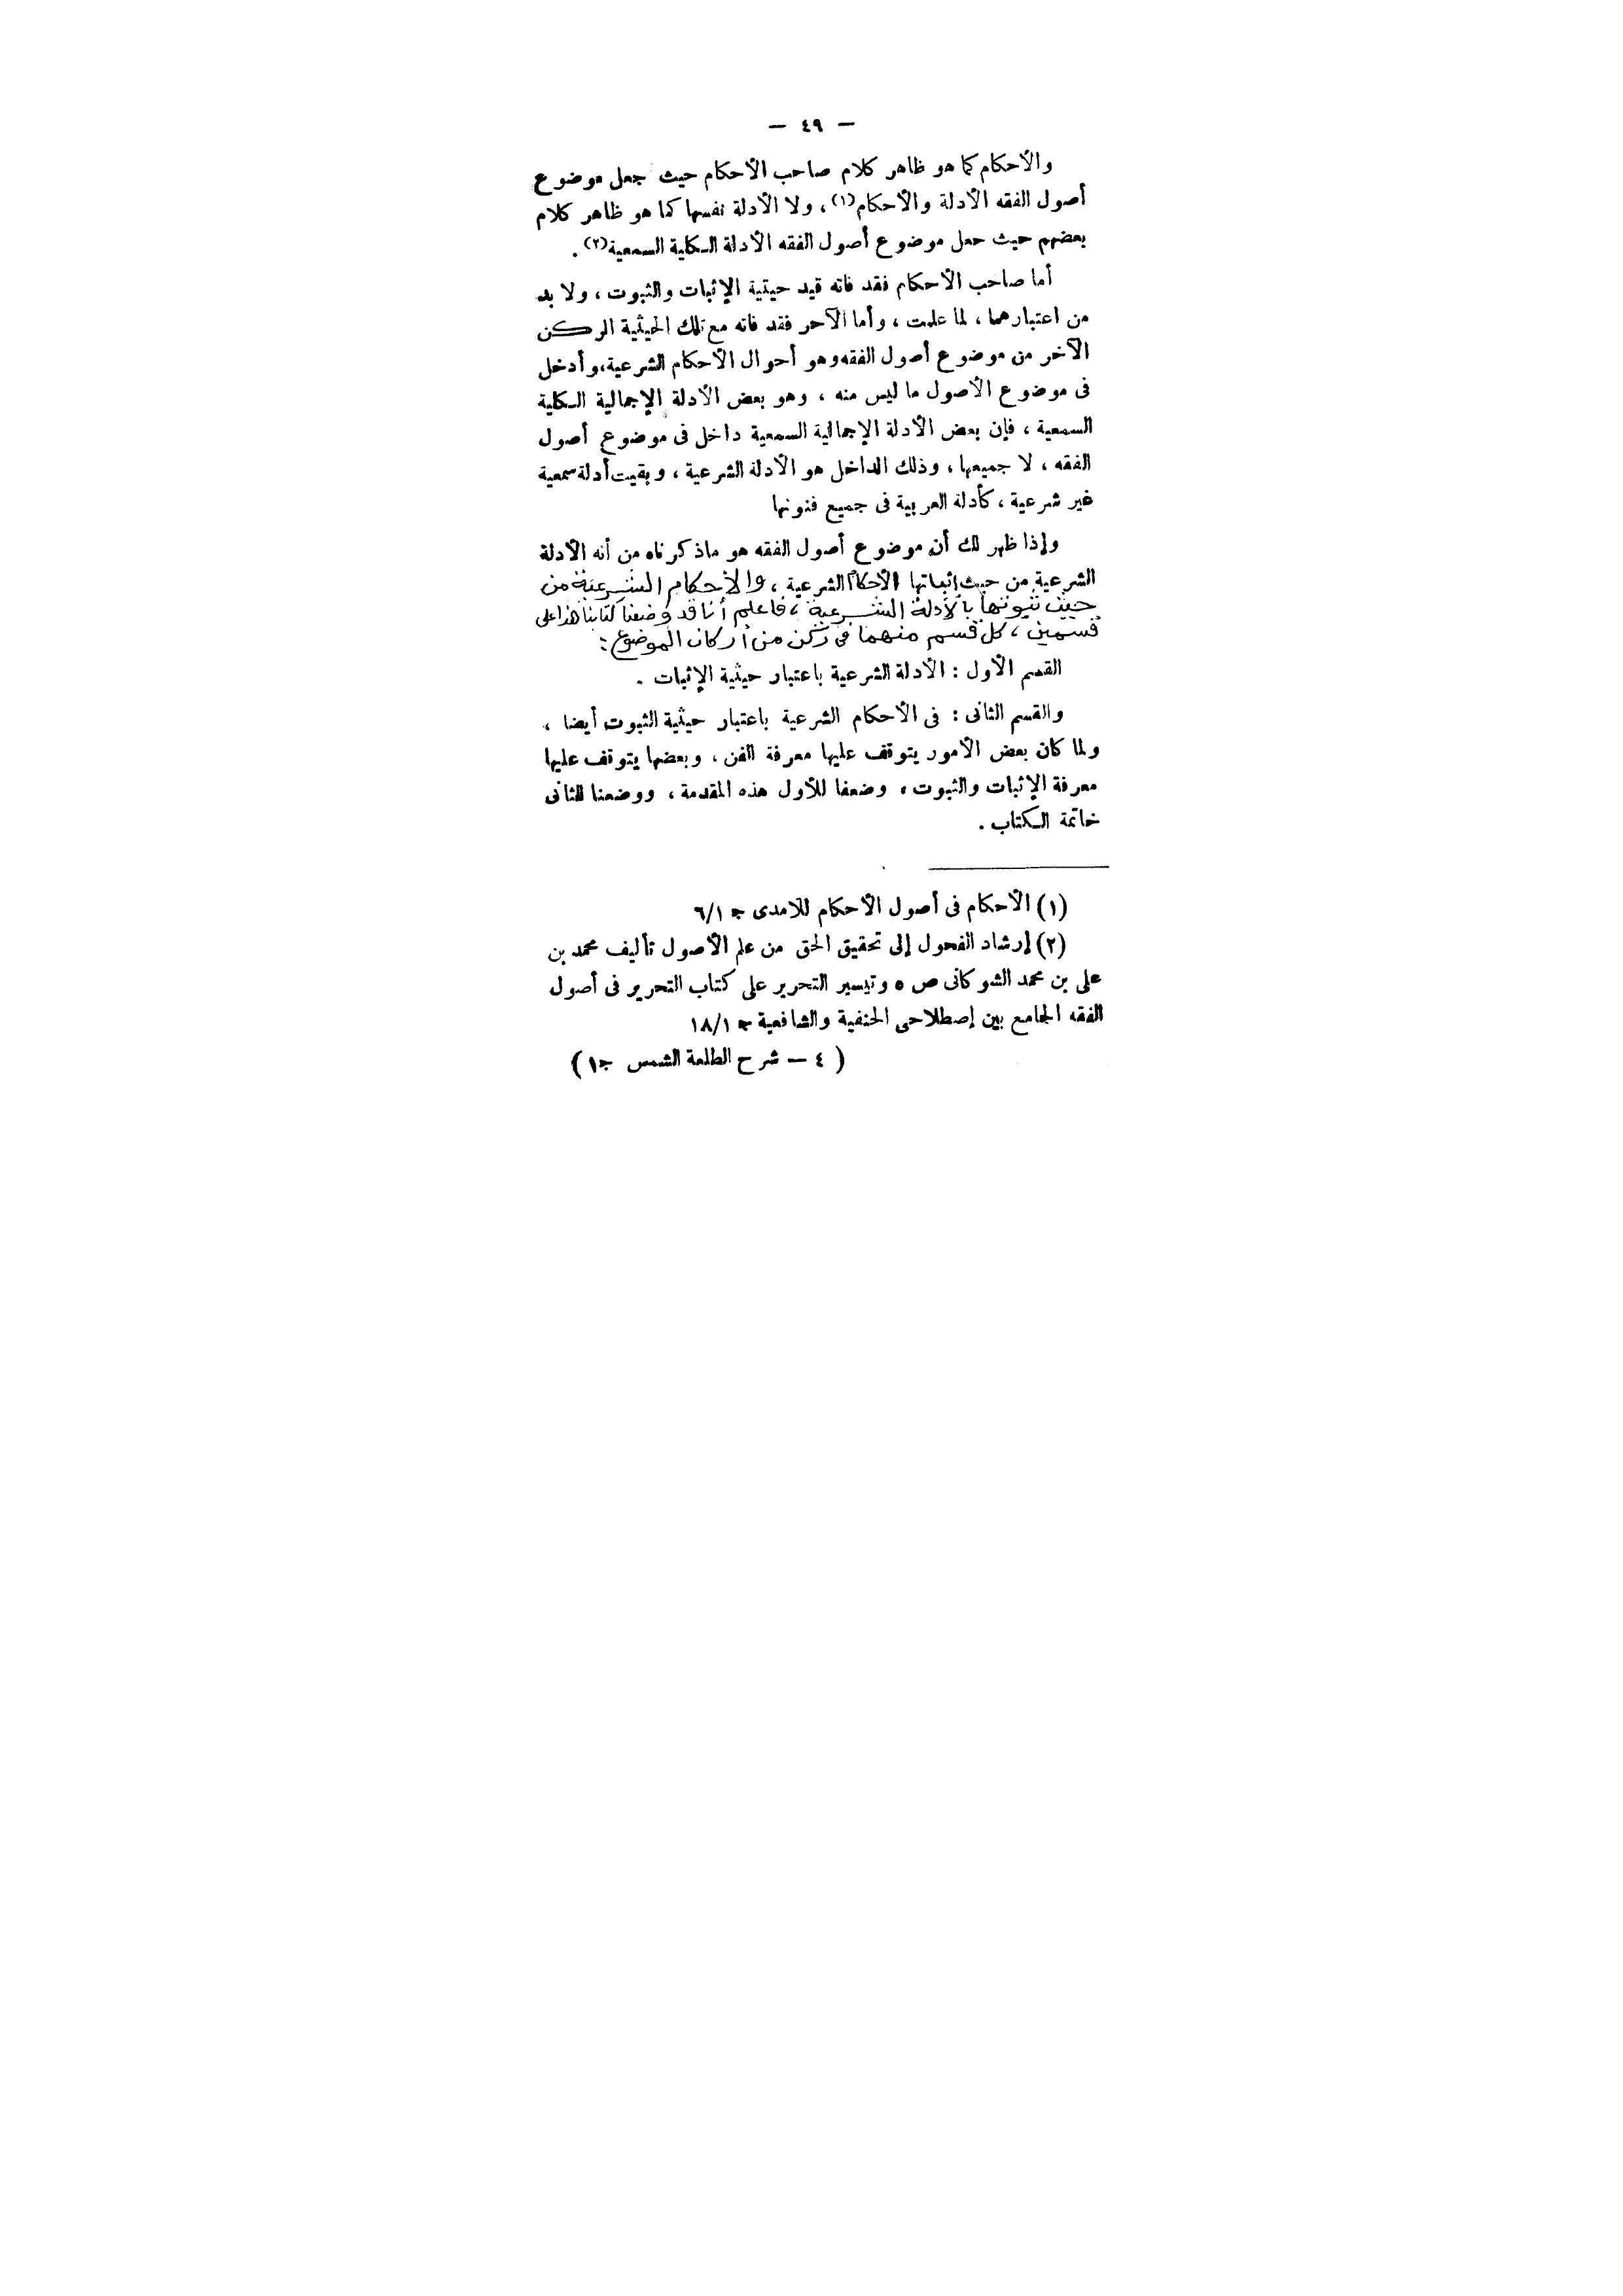 — ٤٩ —
والأحكام كما هو ظاهر كلام صاحب الأحكام حيث جعل موضوع
أصول الفقه الأدلة والأحكام(١) ، ولا الأدلة نفسها كما هو ظاهر كلام
بعضهم حيث جعل موضوع أصول الفقه الأدلة الكلية السمعية(٢) .
أما صاحب الأحكام فقد فاته قيد حيثية الإثبات والثبوت ، ولا بد
من اعتبارهما ، لما علمت ، وأما الآخر فقد فاته مع تلك الحيثية الركن
الآخر من موضوع أصول الفقه وهو أحوال الأحكام الشرعية، وأدخل
فى موضوع الأصول ما ليس منه ، وهو بعض الأدلة الإجمالية الكلية
السمعية ، فإن بعض الأدلة الإجمالية السمعية داخل فى موضوع أصول
الفقه ، لا جميعها ، وذلك الداخل هو الأدلة الشرعية ، وبقيت أدلة سمعية
غير شرعية ، كأدلة العربية فى جميع فنونها
وإذا ظهر لك أن موضوع أصول الفقه هو ماذكرناه من أنه الأدلة
الشرعية من حيث إثباتها الأحكام الشرعية ، والأحكام الشرعية من
حيث ثبوتها بالأدلة الشرعية ، فاعلم أنا قد وضعنا كتابنا هذا على
قسمين ، كل قسم منهما فى ركن من أركان الموضوع :
القسم الأول : الأدلة الشرعية باعتبار حيثية الإثبات .
والقسم الثانى : فى الأحكام الشرعية باعتبار حيثية الثبوت أيضا ،
ولما كان بعض الأمور يتوقف عليها معرفة الفن ، وبعضها يتوقف عليها
معرفة الإثبات والثبوت ، وضعنا للأول هذه المقدمة ، ووضعنا للثانى
خاتمة الكتاب .
(١) الأحكام فى أصول الأحكام للآمدى ج ٦/١
(٢) إرشاد الفحول إلى تحقيق الحق من علم الأصول تأليف محمد بن
على بن محمد الشوكانى ص ٥ وتيسير التحرير على كتاب التحرير فى أصول
الفقه الجامع بين إصطلاحى الحنفية والشافعية ج ١٨/١
( ٤ — شرح الطلعة الشمس ج١ )